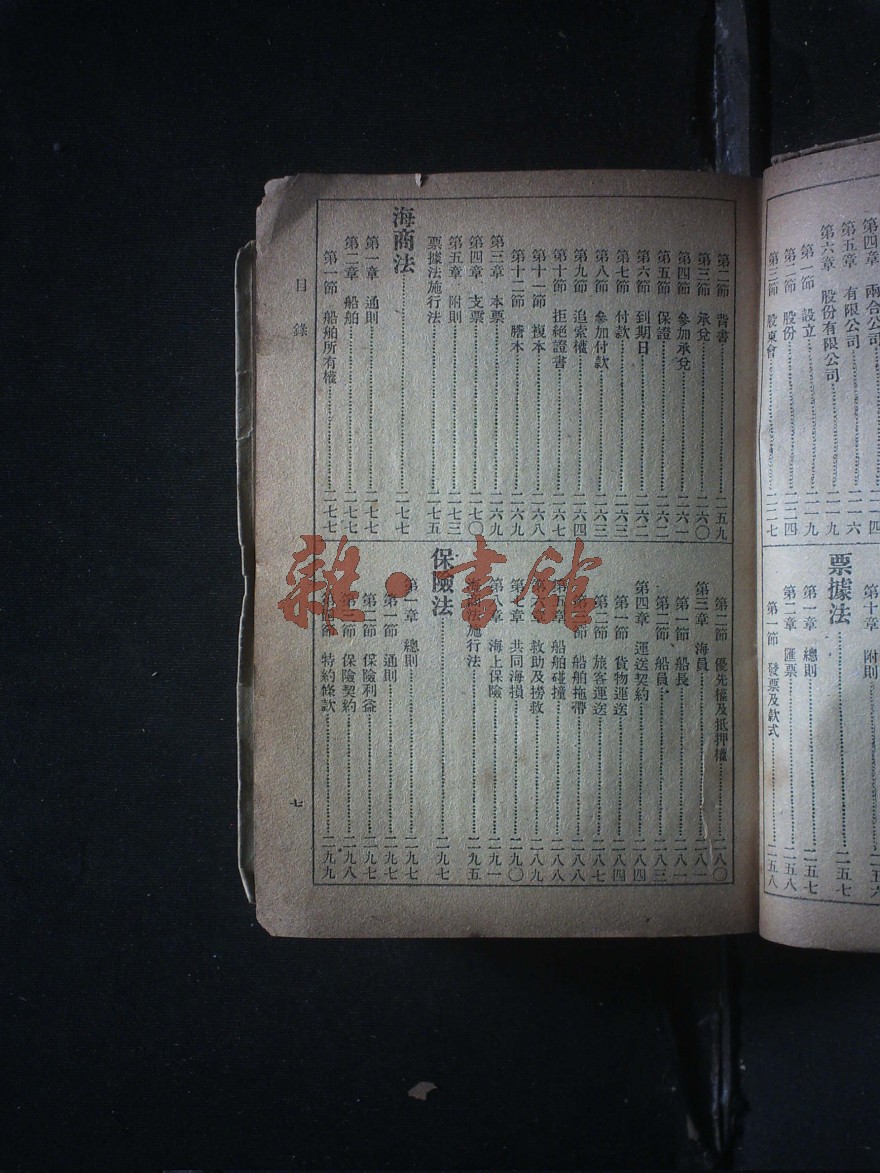 第四章 兩合公司
第五章 有限公司……二一六
第六章 股份有限公司……二一九
第一節 設立……二一九
第二節 股份……二二四
第三節 股東會……二二七
第十章 附則……二五六
票據法……二五七
第一章 總則……二五七
第二章 匯票……二五八
第一節 發票及款式……二五八
第二節 背書……二五九
第三節 承兌……二六〇
第四節 參加承兌……二六一
第五節 保證……二六二
第六節 到期日……二六二
第七節 付款……二六三
第八節 參加付款……二六三
第九節 追索權……二六四
第十節 拒絕證書……二六七
第十一節 複本……二六八
第十二節 謄本……二六九
第三章 本票……二六九
第四章 支票……二七〇
第五章 附則……二七三
票據法施行法……二七五
海商法……二七七
第一章 通則……二七七
第二章 船舶……二七七
第一節 船舶所有權……二七七
第二節 優先權及抵押權……二八〇
第三章 海員……二八一
第一節 船長……二八一
第二節 船員……二八三
第四章 運送契約……二八四
第一節 貨物運送……二八四
第二節 旅客運送……二八七
第三節 船舶拖帶……二八八
第五章 船舶碰撞……二八八
第六章 救助及撈救……二八九
第七章 共同海損……二九〇
第八章 海上保險……二九一
海商法施行法……二九五
保險法……二九七
第一章 總則……二九七
第一節 通則……二九七
第二節 保險利益……二九七
第三節 保險契約……二九八
第四節 特約條款……二九九
目錄
七
雜·書館